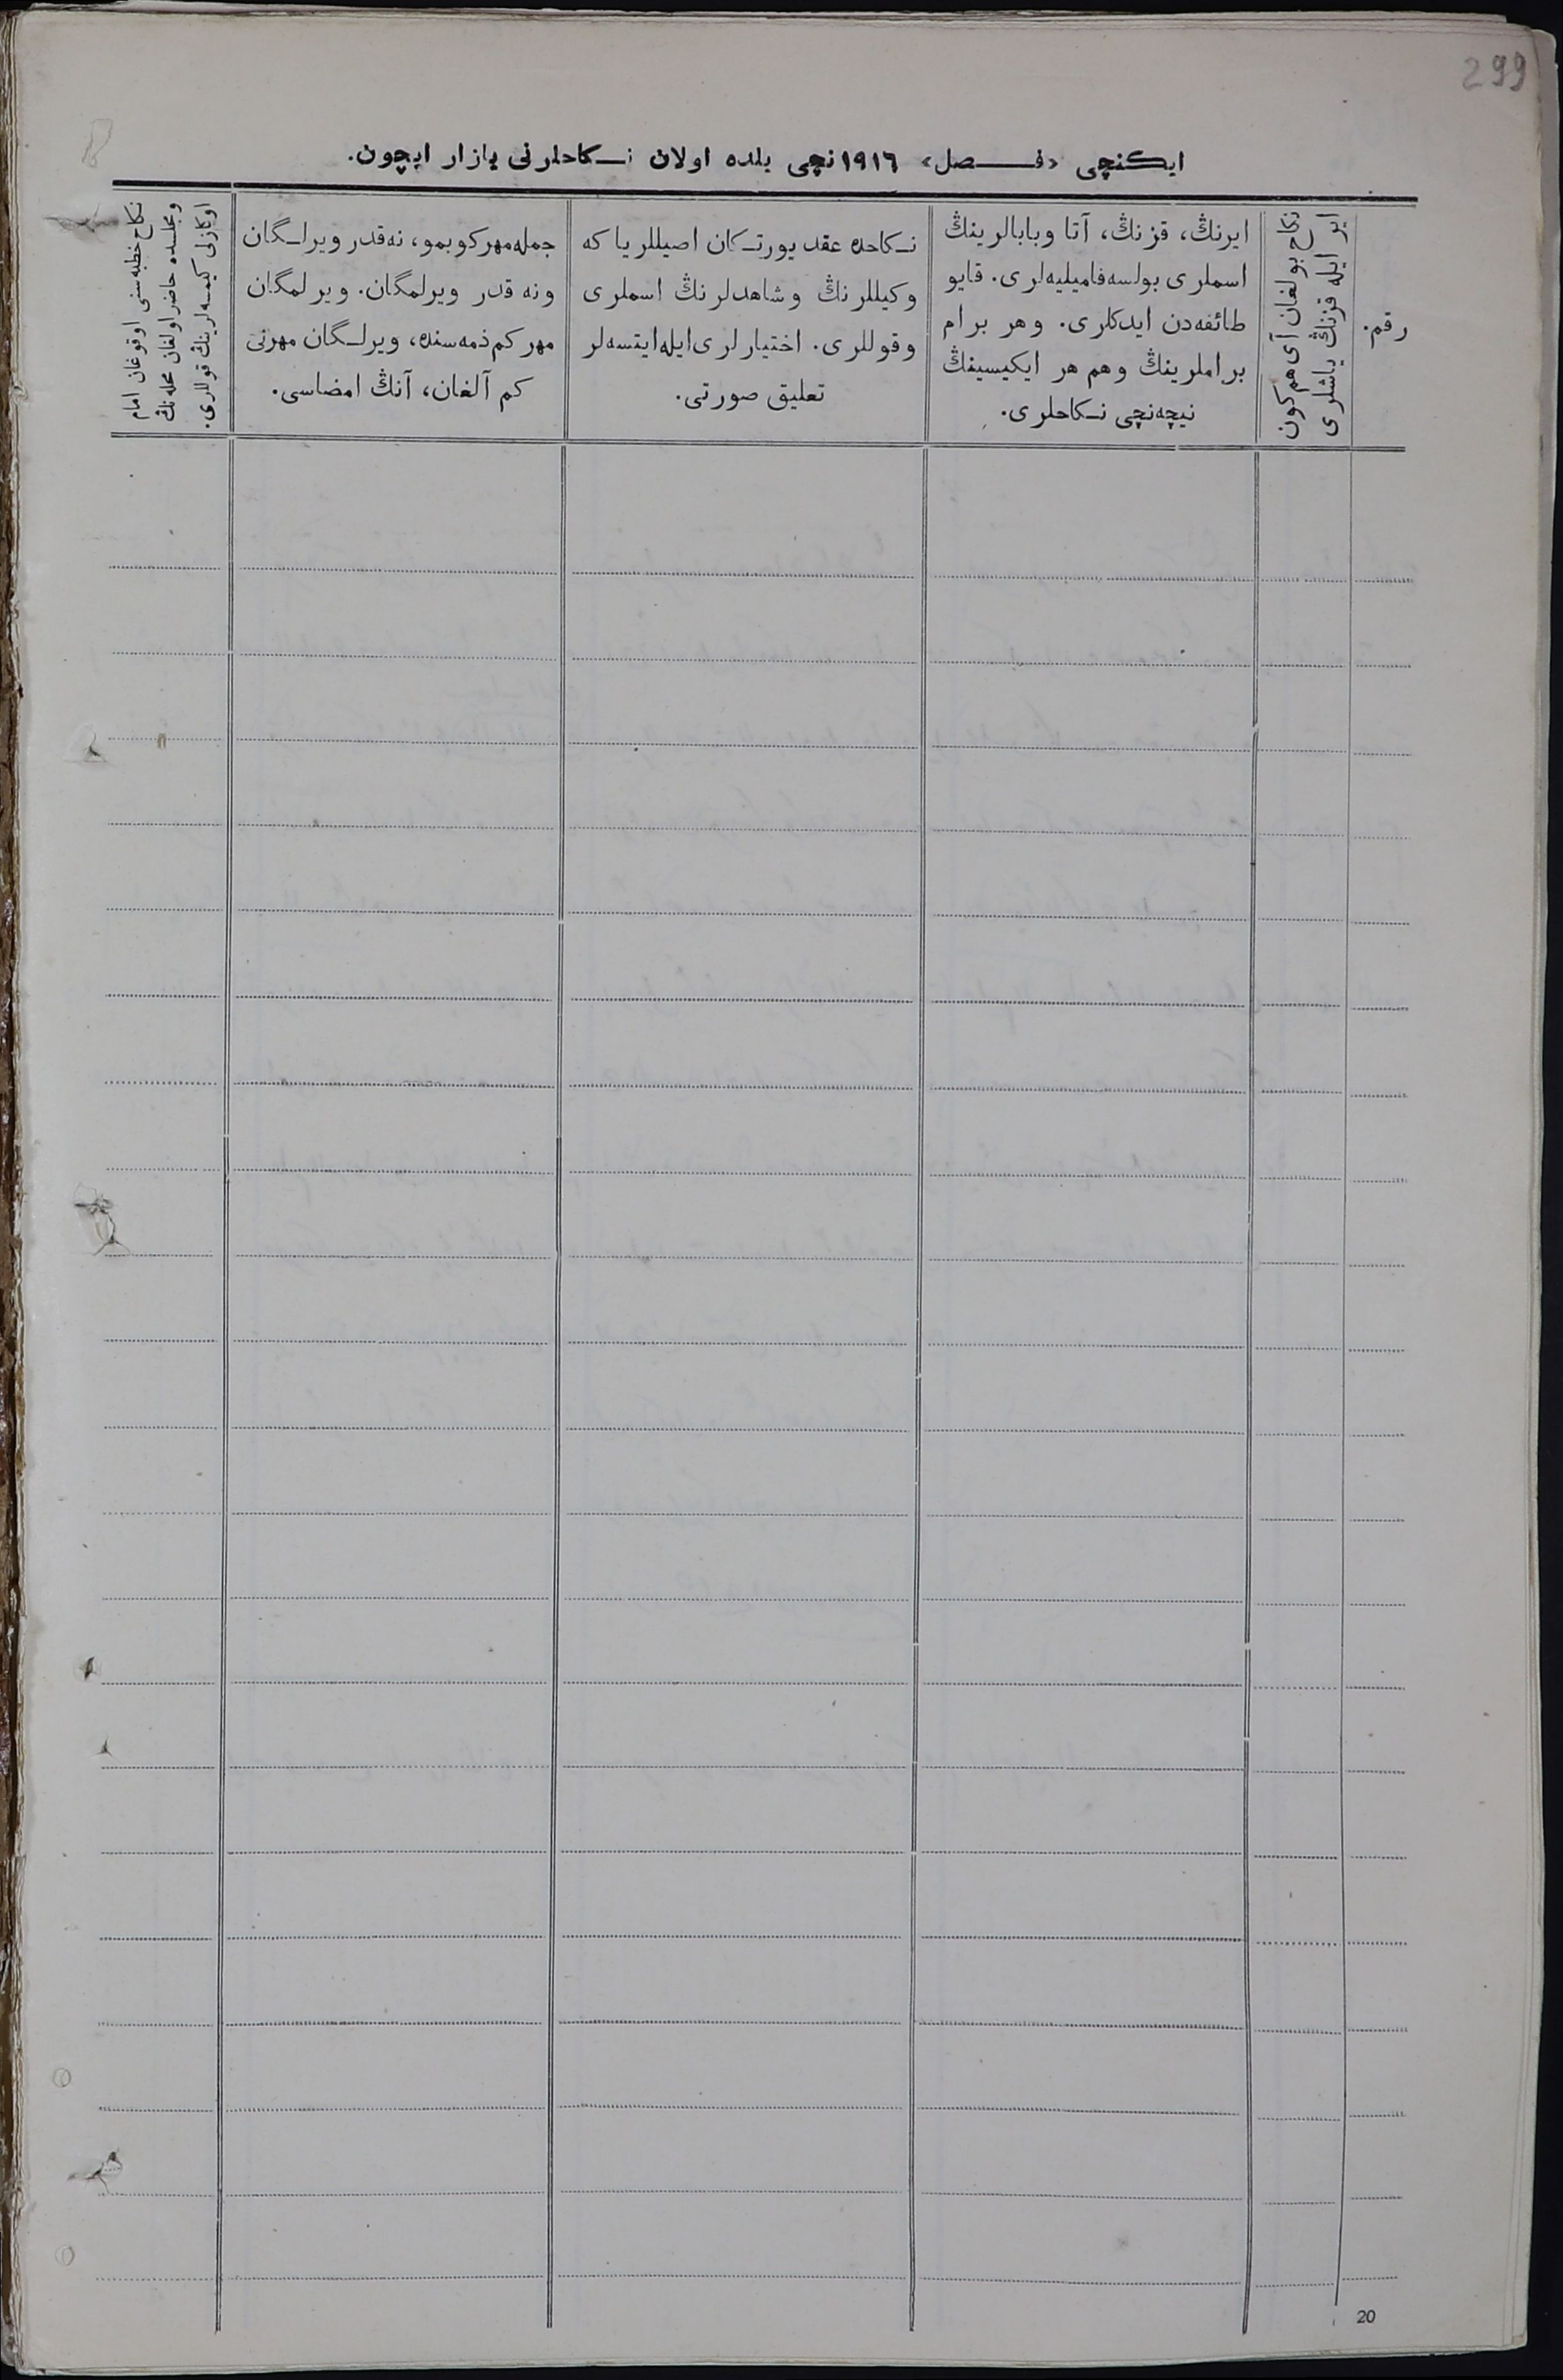 299
ایکنچی «فصل» ١٩١٦نچی یلده اولان نکاحلرنی یازار ایچون.
رقم.
ایر ایله قزنڭ یاشلری
نکاح بولغان آی هم کون
ایرنڭ، قزنڭ، آتا وبابالرینڭ
اسملری بولسه فامیلیه‌لری. قایو
طائفه‌دن ایدکلری. وهر برام
براملرینڭ وهم هر ایکیسینڭ
نیچه‌نچی نکاحلری.
نکاحده عقد یورتکان اصیللر یا که
وکیللرنڭ وشاهدلرنڭ اسملری
وقوللری. اختیارلری ایله ایتسه‌لر
تعلیق صورتی.
جمله مهر کوبمو، نه قدر ویرلگان
ونه قدر ویرلمگان. ویرلمگان
مهر کم ذمه‌سنده، ویرلگان مهرنی
کم آلغان، آنڭ امضاسی.
نکاح خطبه‌سنی اوقوغان امام
ومجلسده حاضر اولغان محله‌نڭ
اوکازنی کیمسه‌لرینڭ قوللری.
20